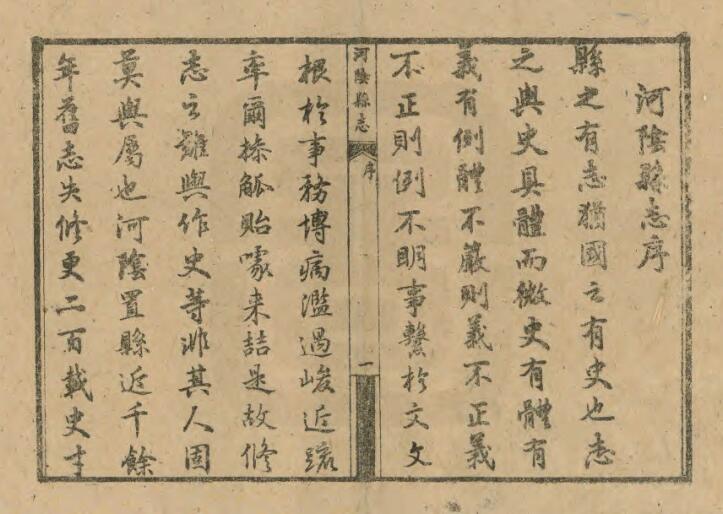 河陰縣志序
縣之有志猶國之有史也志
之與史具體而微史有體有
義有例體不嚴則義不正義
不正則例不明事繫於文文
河陰縣志
序
一
根於事務博病濫過峻近疏
率爾操觚貽喙来詰是故修
志之難與作史等非其人固
莫與屬也河陰置縣近千餘
年舊志失修更二百載史才